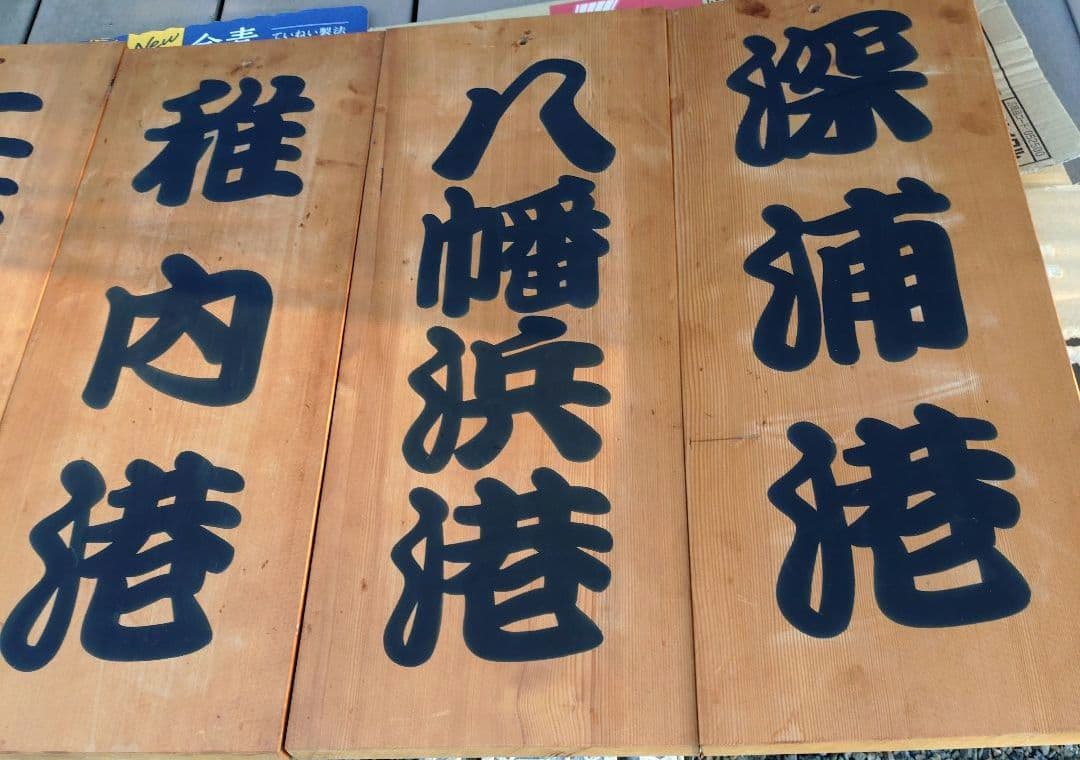 深浦港
八幡浜港
稚内港
New
ていねい製法